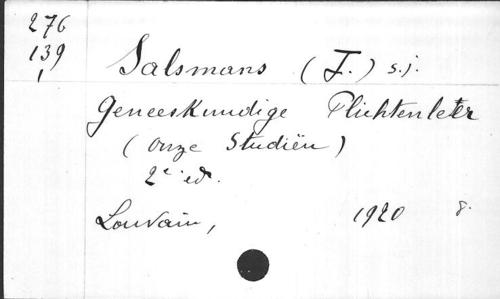 276
139
1
Salsmans (J.) s.j.
Geneeskundige Plichtenleer
(Onze Studiën)
2e ed.
Louvain, 1920 8.